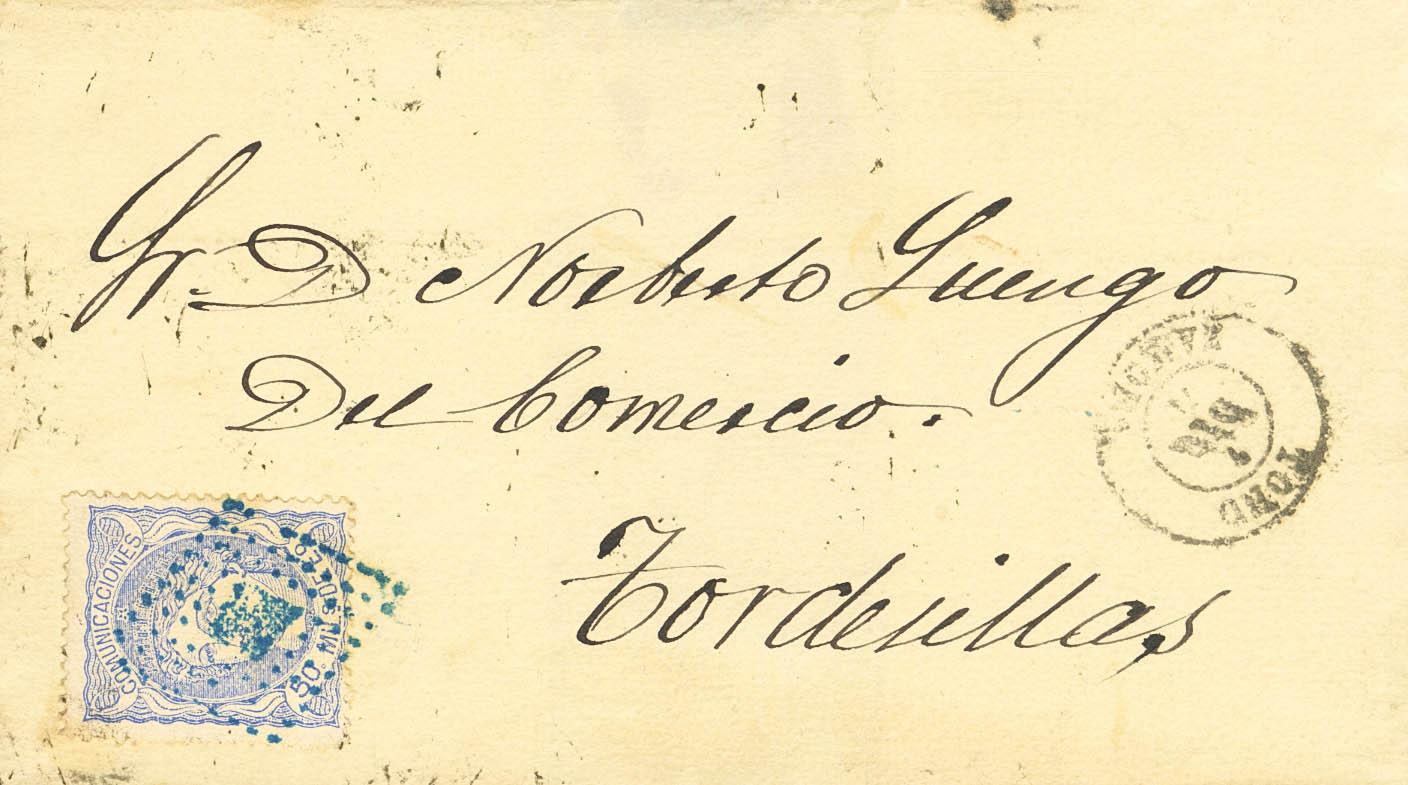 Sr. D Norberto Luengo
Del Comercio.
Tordesillas
COMUNICACIONES
50 MILS DE E
TORO
ZAMORA